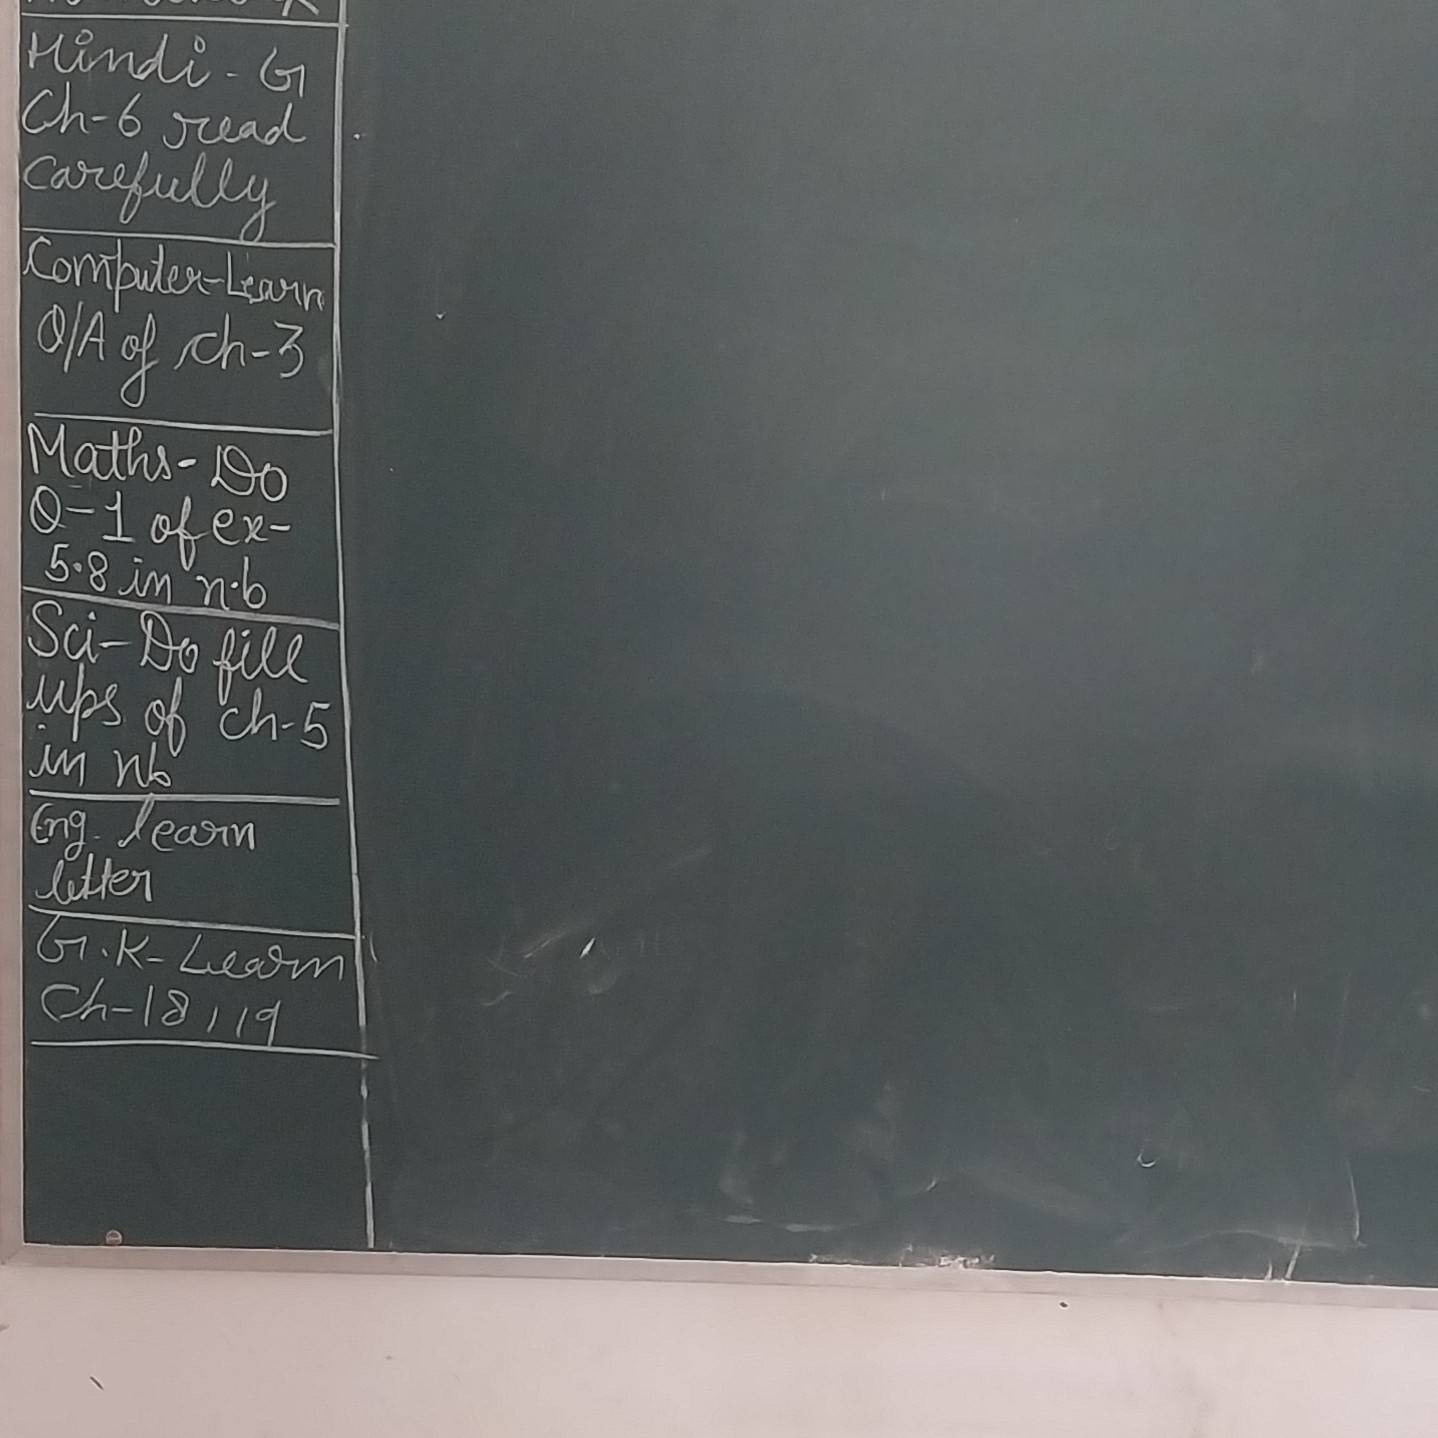 Hindi - G
Ch-6 read
carefully
Computer-Learn
Q/A of ch-3
Maths- Do
Q-1 of ex-
5.8 in n.b
Sci- Do fill
ups of ch-5
in nb
Eng. learn
letter
G.K- Learn
Ch-18,19